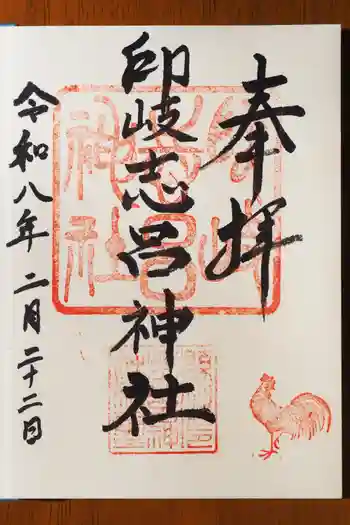 奉拝
印岐志呂神社
令和八年二月二十二日